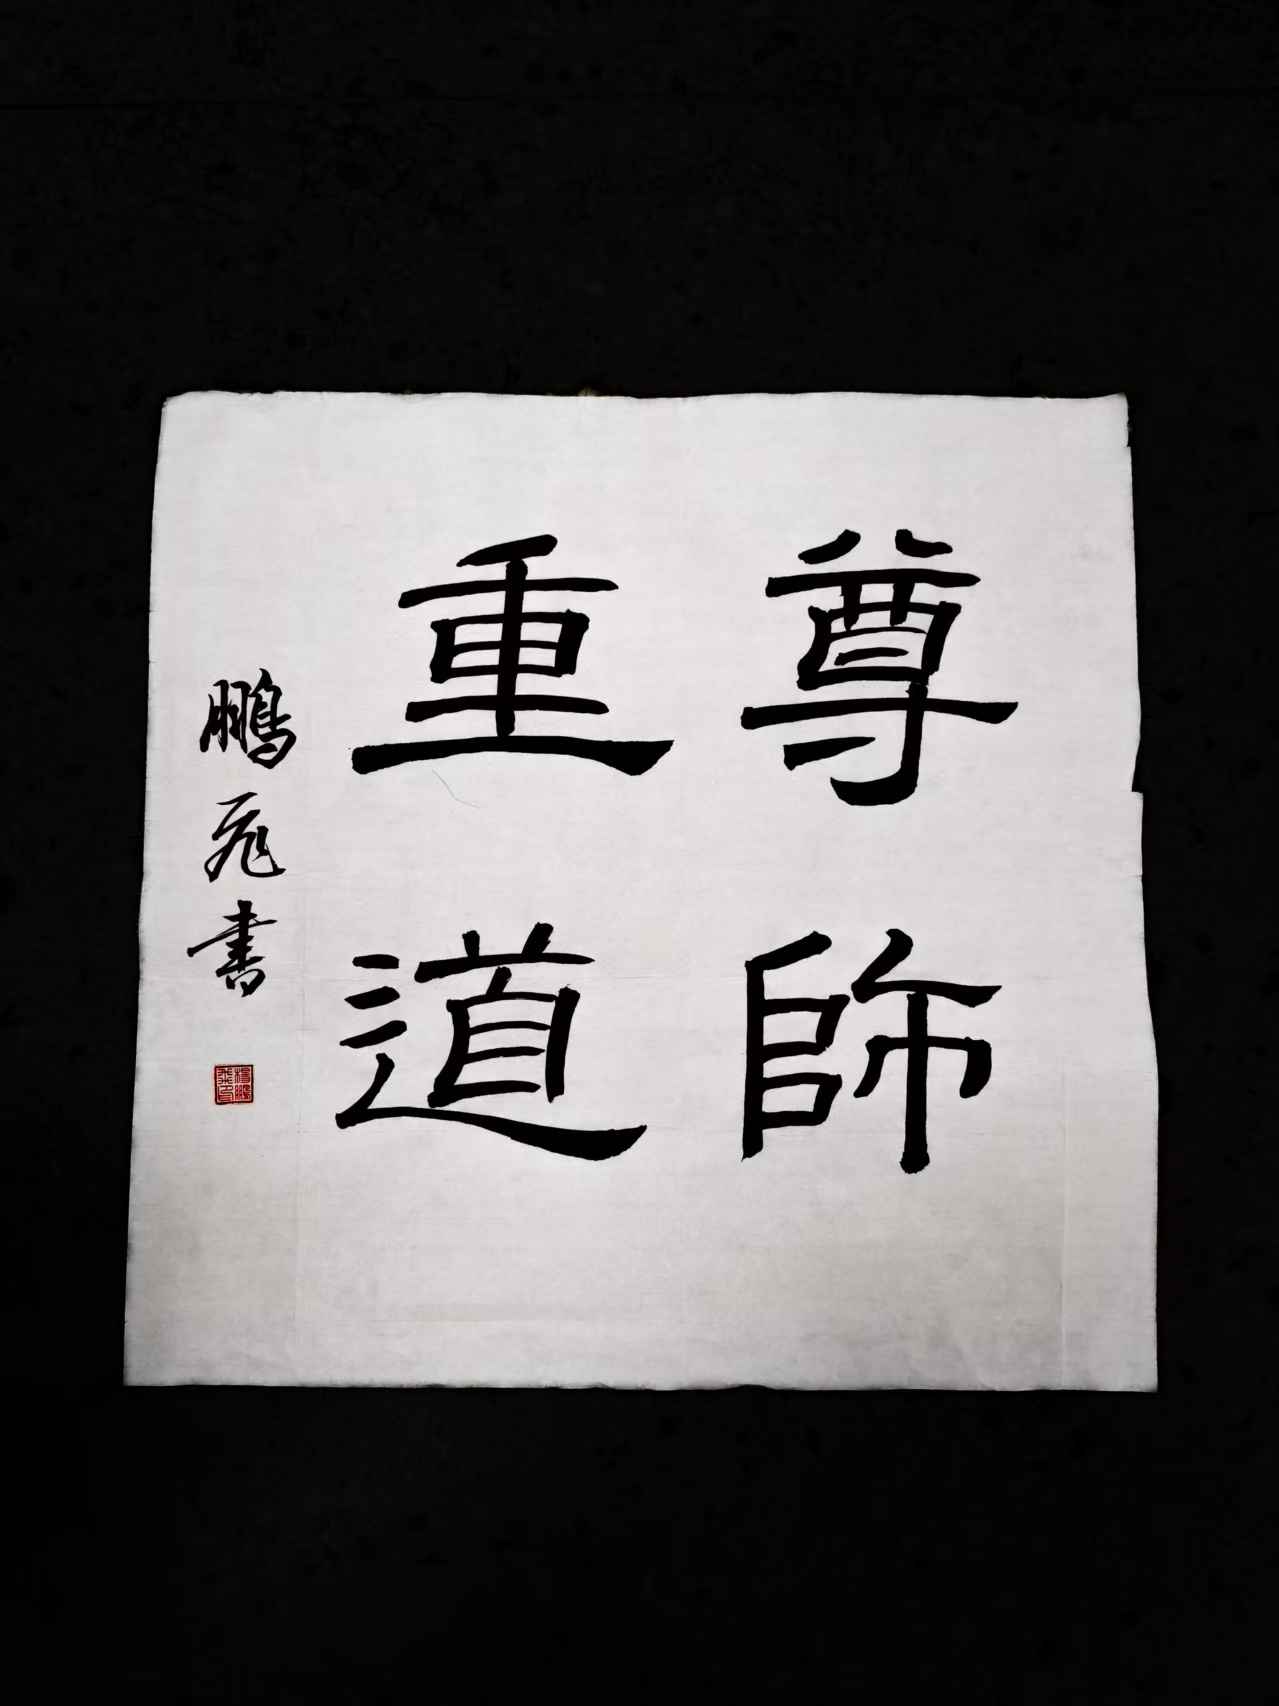 尊師
重道
鵬飛書